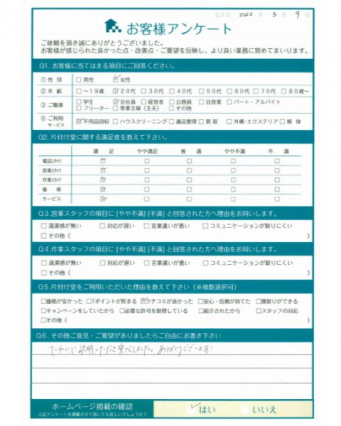 記入日 2022 年 3 月 9 日
お客様アンケート
ご依頼を頂き誠にありがとうございました。
お客様が感じられた良かった点・改善点・ご要望を反映し、より良い業務に努めてまいります。
Q1. お客様に当てはまる項目にご回答ください。
① 性 別 □男性 ☑女性
② 年 齢 □～19歳 ☑20代 □30代 □40代 □50代 □60代 □70代 □80歳～
③ ご職業 □学生 ☑会社員 □経営者 □公務員 □自営業 □パート・アルバイト
□フリーター □専業主婦（主夫） □その他
④ ご利用サービス ☑不用品回収 □ハウスクリーニング □遺品整理 □買取 □外構・エクステリア □解体
Q2. 片付け堂に関する満足度を教えて下さい。
満 足 やや満足 普 通 やや不満 不 満
電話スタッフ ☑ □ □ □ □
営業スタッフ ☑ □ □ □ □
作業スタッフ ☑ □ □ □ □
価 格 ☑ □ □ □ □
サービス ☑ □ □ □ □
Q3. 営業スタッフの項目に[やや不満][不満]と回答された方へ理由をお伺いします。
□清潔感が無い □対応が遅い □言葉遣いが悪い □コミュニケーションが取りにくい
□その他（ ）
Q4. 作業スタッフの項目に[やや不満][不満]と回答された方へ理由をお伺いします。
□清潔感が無い □対応が遅い □言葉遣いが悪い □コミュニケーションが取りにくい
□その他（ ）
Q5. 片付け堂をご利用いただいた理由を教えて下さい（※複数選択可）
□価格が安かった □Tポイントが貯まる ☑クチコミが良かった □安心・信頼が持てた □買取ができる
□キャンペーンをしていたから □必要な許可を持っていたから □紹介されたから □スタッフの対応
□その他（ ）
Q6. その他ご意見・ご要望がありましたらご自由にお書き下さい
ていねいに説明いただき
ありがとうございます
ホームページ掲載の確認
☑はい □いいえ